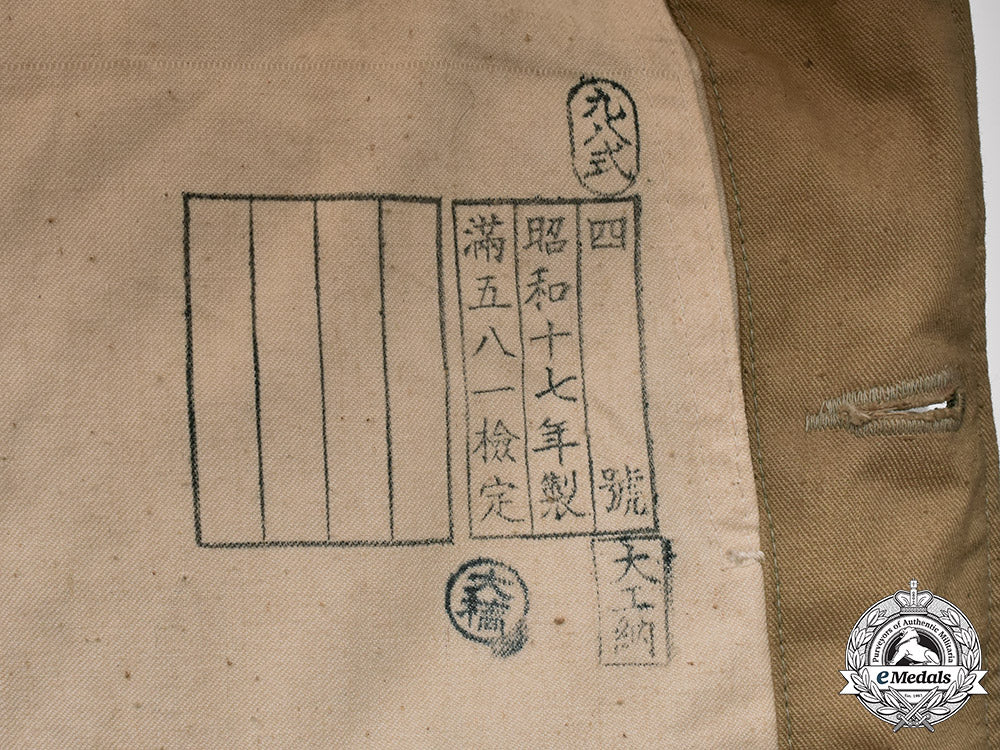 九八式
四號
昭和十七年製
滿五八一檢定
大工納
Purveyors of Authentic Militaria
eMedals